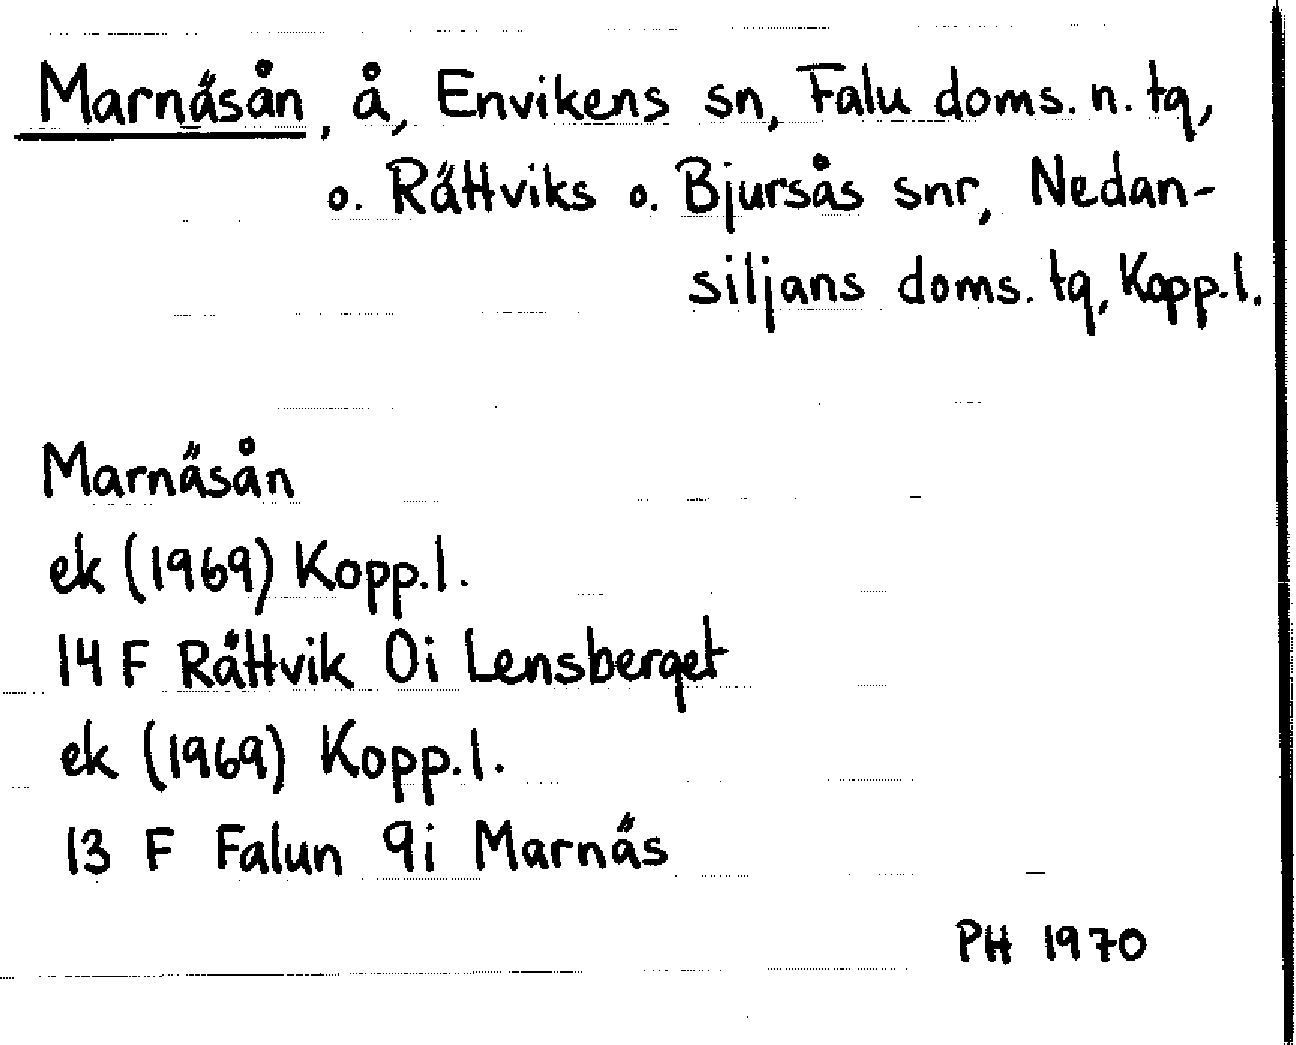 Marnäsån, å, Envikens sn, Falu doms. n. tg,
o. Rättviks o. Bjursås snr, Nedan-
siljans doms. tg, Kopp.l.
Marnäsån
ek (1969) Kopp.l.
14 F Rättvik 0i Lensberget
ek (1969) Kopp.l.
13 F Falun 9i Marnäs
PH 1970